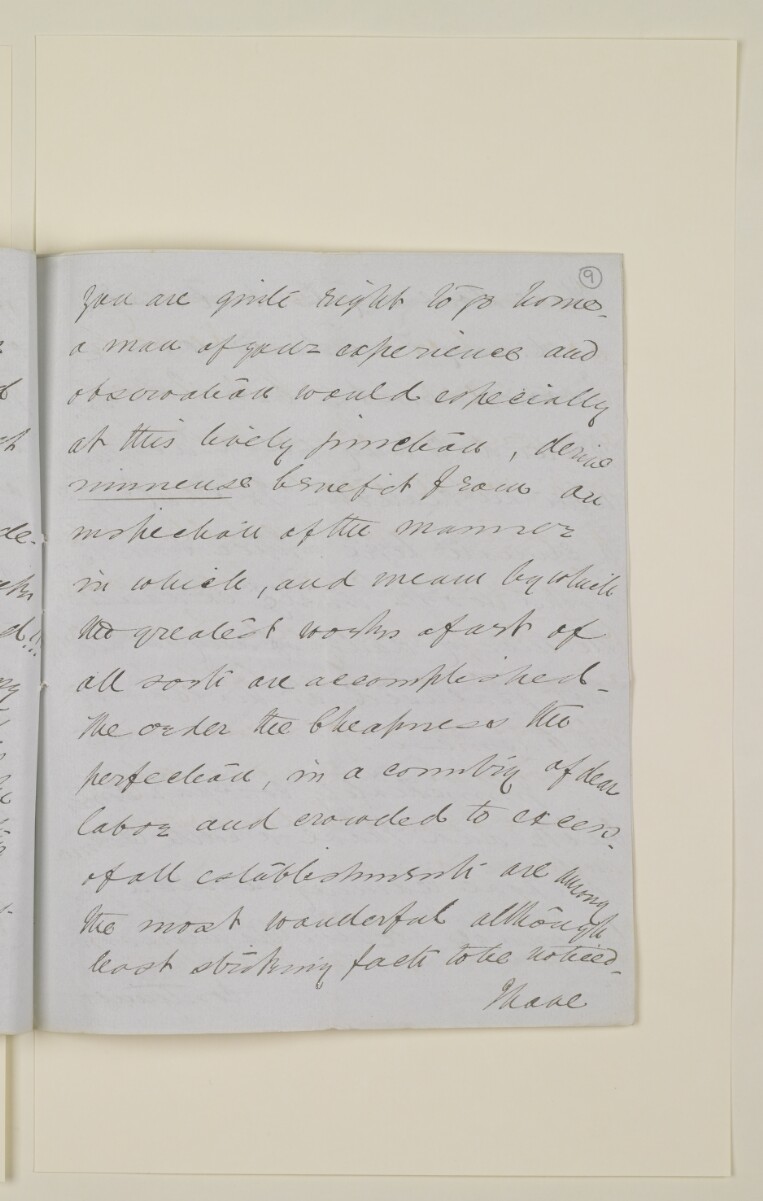 9
you are quite right to go home.
a man of your experience and
observation would especially
at this lively junction, derive
immense benefit from an
inspection of the manner
in which, and means by which
the greatest works of art of
all sorts are accomplished.
The order the cheapness the
perfection, in a country of dear
labor and crowded to excess.
of all establishments are among
the most wonderful although
least striking facts to be noticed.
I have